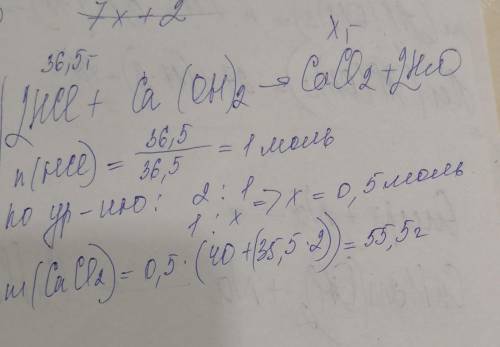 7x+2
36,5г xг
2HCl + Ca(OH)₂ → CaCl₂ + 2H₂O
n(HCl) = 36,5/36,5 = 1 моль
по ур-нию: 2 : 1
1 : x => x = 0,5 моль
m(CaCl₂) = 0,5·(40+(35,5·2)) = 55,5г